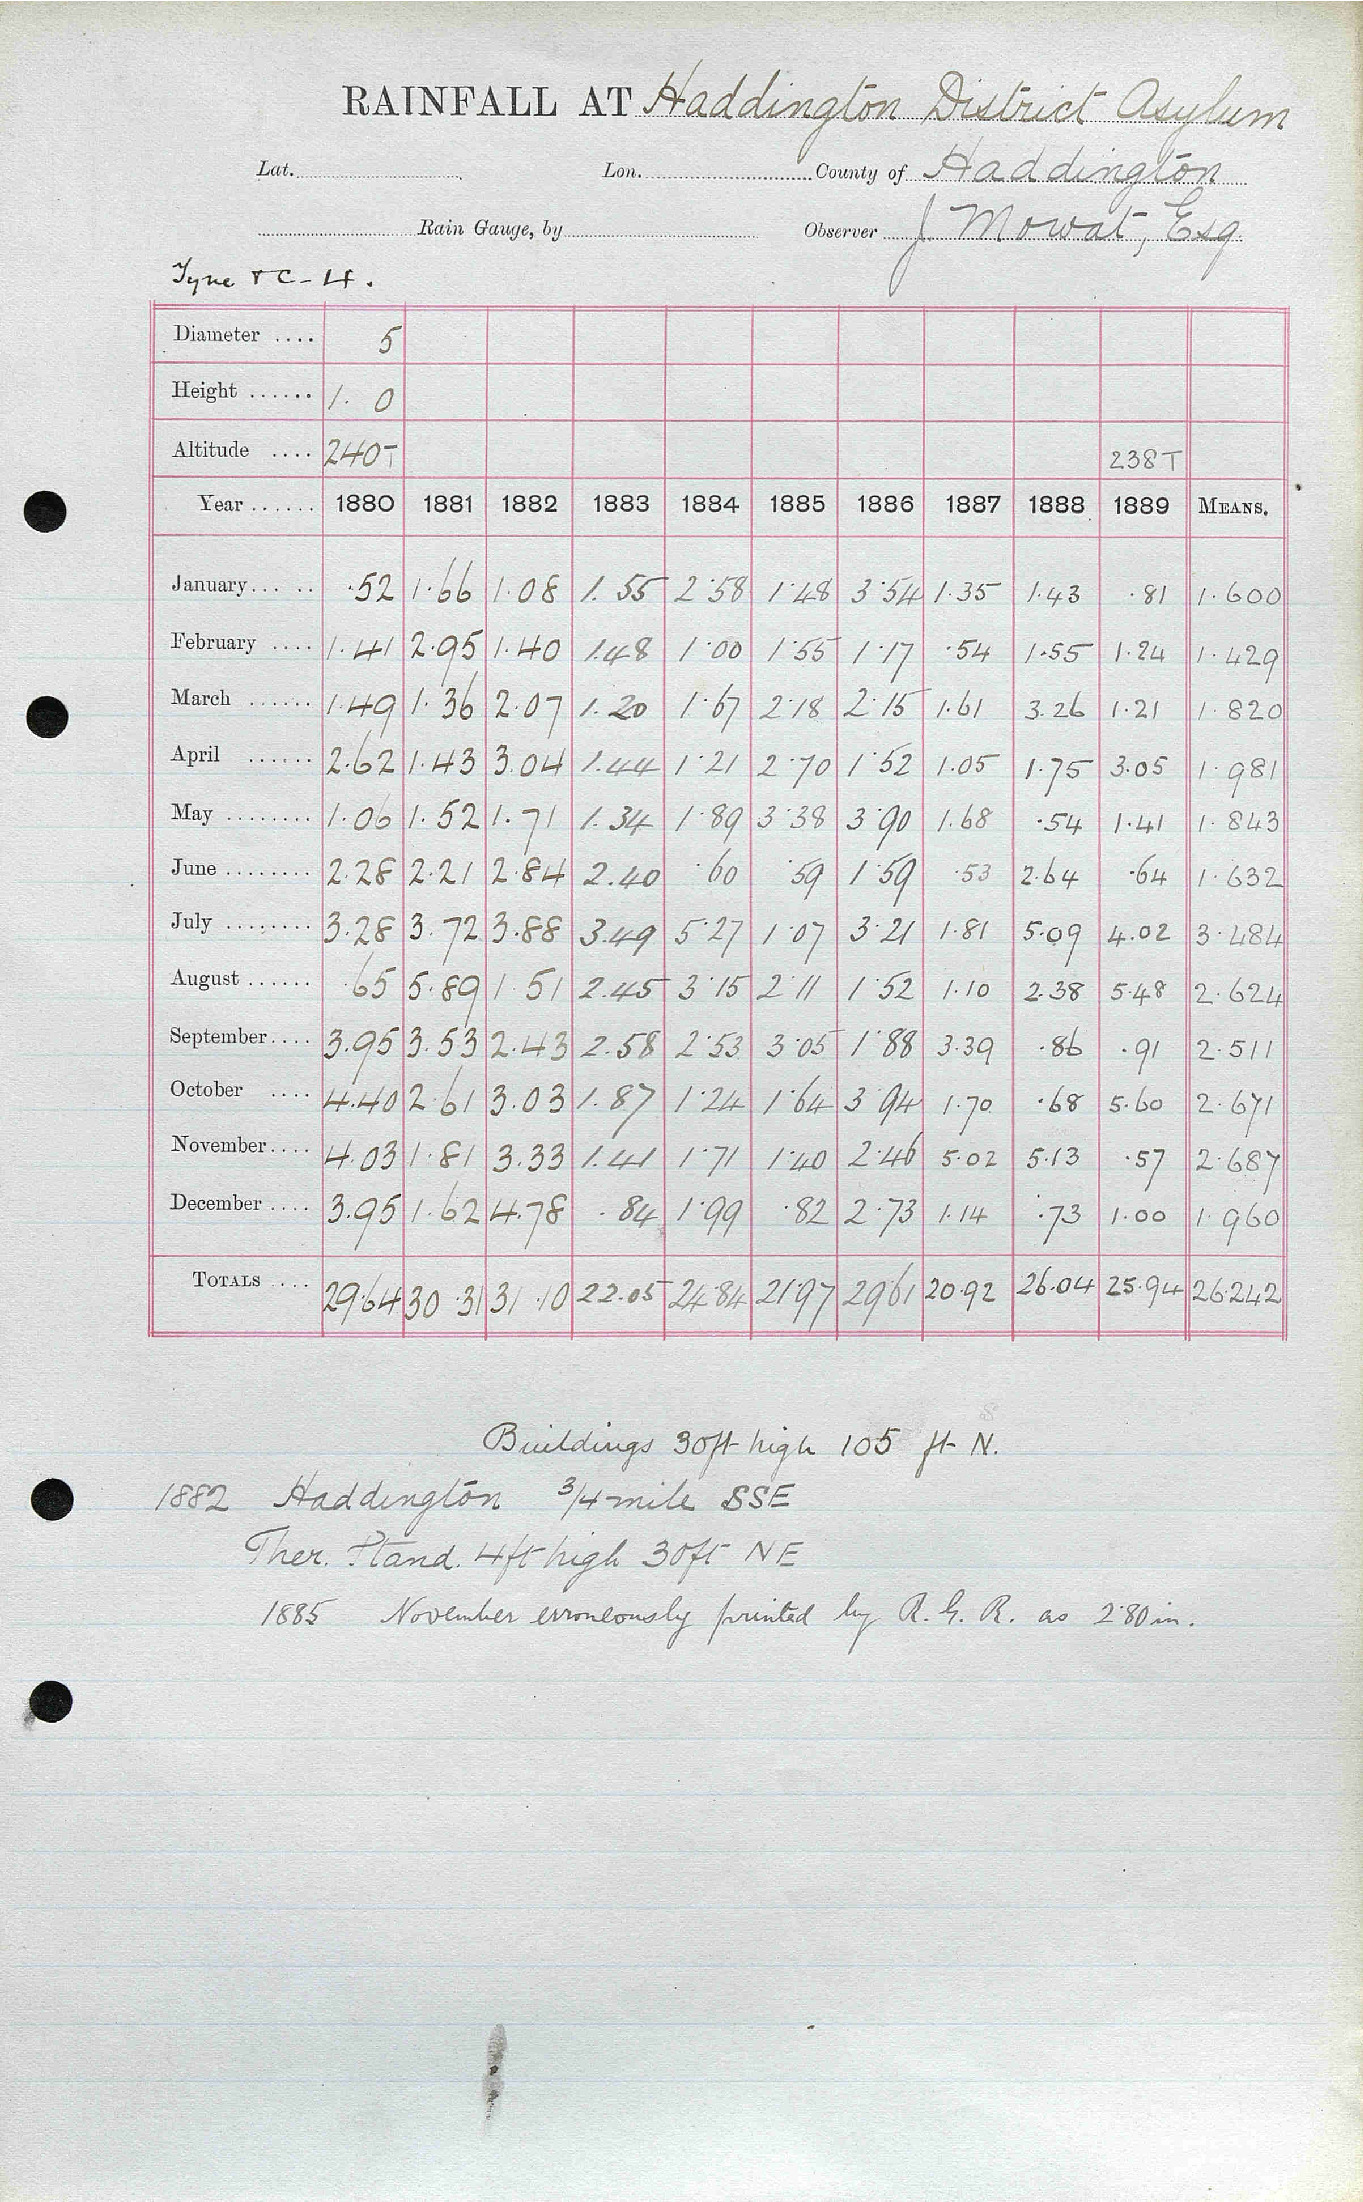 RAINFALL AT Haddington District Asylum
Lat. Lon. County of Haddington
Rain Gauge, by Observer J. Mowat, Esq.
Tyne & C-4.
Diameter .... 5
Height ...... 1. 0
Altitude .... 240T 238T
Year ...... 1880 1881 1882 1883 1884 1885 1886 1887 1888 1889 MEANS.
January ... .. .52 1.66 1.08 1.55 2.58 1.48 3.54 1.35 1.43 .81 1.600
February .... 1.41 2.95 1.40 1.48 1.00 1.55 1.17 .54 1.55 1.24 1.429
March ...... 1.49 1.36 2.07 1.20 1.67 2.18 2.15 1.61 3.26 1.21 1.820
April ...... 2.62 1.43 3.04 1.44 1.21 2.70 1.52 1.05 1.75 3.05 1.981
May ........ 1.06 1.52 1.71 1.34 1.89 3.38 3.90 1.68 .54 1.41 1.843
June ........ 2.28 2.21 2.84 2.40 .60 .59 1.59 .53 2.64 .64 1.632
July ........ 3.28 3.72 3.88 3.49 5.27 1.07 3.21 1.81 5.09 4.02 3.484
August ...... .65 5.89 1.51 2.45 3.15 2.11 1.52 1.10 2.38 5.48 2.624
September .... 3.95 3.53 2.43 2.58 2.53 3.05 1.88 3.39 .86 .91 2.511
October .... 4.40 2.61 3.03 1.87 1.24 1.64 3.94 1.70 .68 5.60 2.671
November .... 4.03 1.81 3.33 1.41 1.71 1.40 2.46 5.02 5.13 .57 2.687
December .... 3.95 1.62 4.78 .84 1.99 .82 2.73 1.14 .73 1.00 1.960
TOTALS .... 29.64 30.31 31.10 22.05 24.84 21.97 29.61 20.92 26.04 25.94 26.242
Buildings 30ft high 105 ft N.
1882 Haddington 3/4 mile SSE
Ther. Stand. 4ft high 30ft NE
1885 November erroneously printed by R. G. R. as 2.80 in.